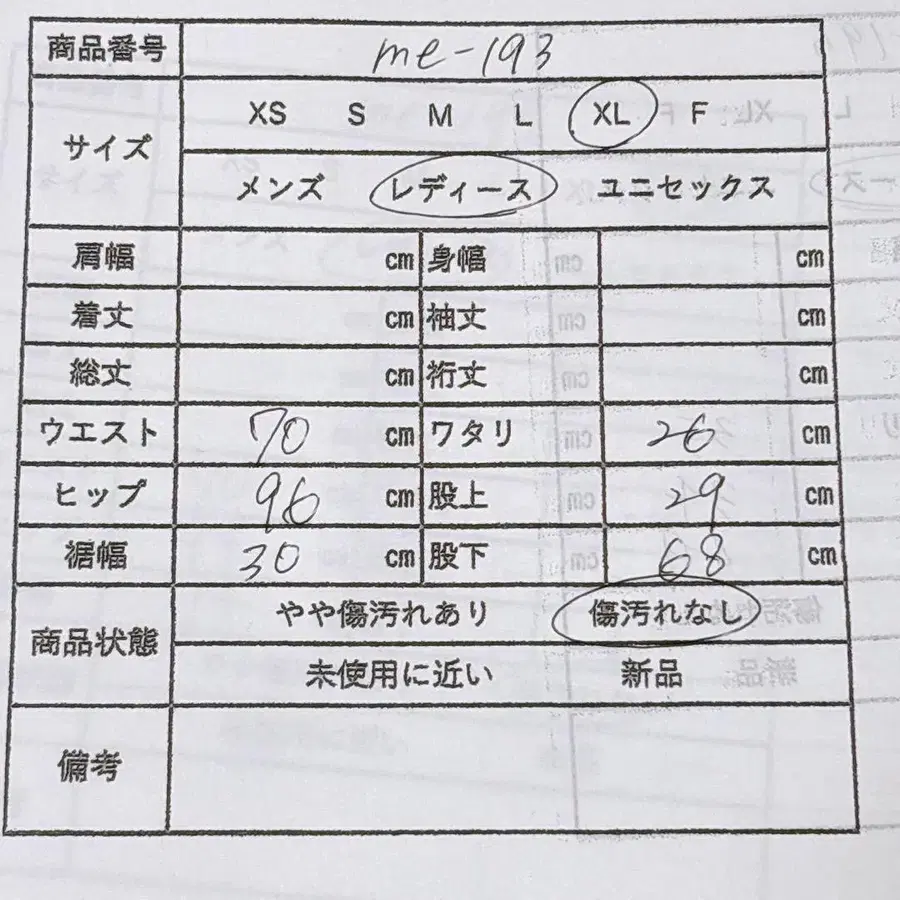 商品番号 me-193
サイズ XS S M L XL F
メンズ レディース ユニセックス
肩幅 cm 身幅 cm
着丈 cm 袖丈 cm
総丈 cm 裄丈 cm
ウエスト 70 cm ワタリ 26 cm
ヒップ 96 cm 股上 29 cm
裾幅 30 cm 股下 68 cm
商品状態 やや傷汚れあり 傷汚れなし
未使用に近い 新品
備考